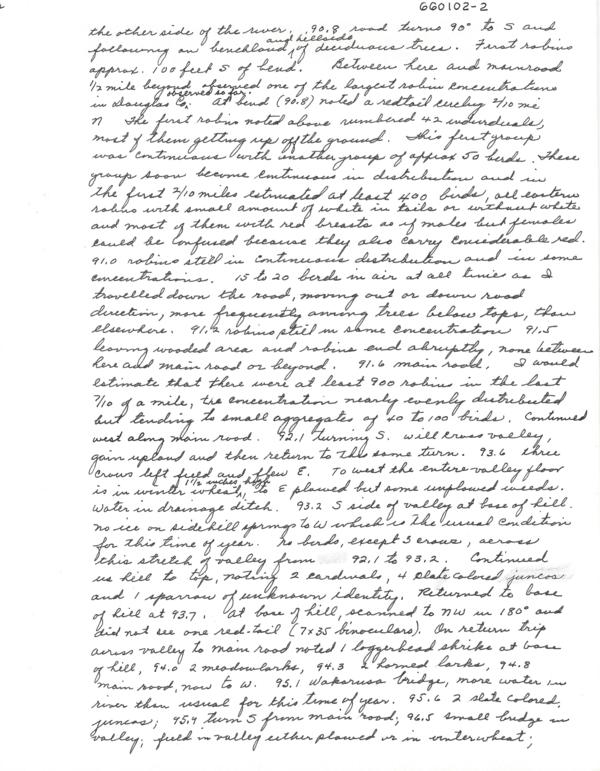 660102-2
the other side of the river. 90.8 road turns 90° to S and
following on benchland, and hillside of deciduous trees. First robins
approx. 100 feet S of bend. Between here and main road
1/2 mile beyond observed one of the largest robin concentrations
in Douglas Co. observed so far. At bend (90.8) noted a redtail circling 2/10 mi
N The first robins noted above numbered 42 individuals,
most of them getting up off the ground. This first group
was continuous with another group of approx 50 birds. These
group soon become continuous in distribution and in
the first 2/10 miles estimated at least 400 birds, all eastern
robins with small amount of white in tails or without white
and most of them with red breasts as if males but females
could be confused because they also carry considerable red.
91.0 robins still in continuous distribution and in some
concentrations. 15 to 20 birds in air at all time as I
travelled down the road, moving out or down road
direction, more frequently among trees below tops, than
elsewhere. 91.2 robins still in same concentration 91.5
leaving wooded area and robins end abruptly, none between
here and main road or beyond. 91.6 main road. I would
estimate that there were at least 900 robins in the last
7/10 of a mile, the concentration nearly evenly distributed
but tending to small aggregates of 40 to 100 birds. Continued
west along main road. 92.1 turning S. will cross valley,
gain upland and then return to the same turn. 93.6 three
crows left field and flew E. To west the entire valley floor
is in winter wheat, 1 1/2 inches high to E plowed but some unplowed weeds.
Water in drainage ditch. 93.2 S side of valley at base of hill.
no ice on sidehill springs to W which is the usual condition
for this time of year. No birds, except 3 crows, across
this stretch of valley from 92.1 to 93.2. Continued
us hill to top, noting 2 cardinals, 4 slate colored juncos
and 1 sparrow of unknown identity. Returned to base
of hill at 93.7. At base of hill, scanned to NW in 180° and
did not see one red-tail (7x35 binoculars). On return trip
across valley to main road noted 1 loggerhead shrike at base
of hill, 94.0 2 meadowlarks, 94.3 2 horned larks, 94.8
main road, now to W. 95.1 Wakarusa bridge, more water in
river than usual for this time of year. 95.6 2 slate colored
juncos; 95.9 turn S from main road; 96.5 small bridge in
valley; field in valley either plowed or in winter wheat;